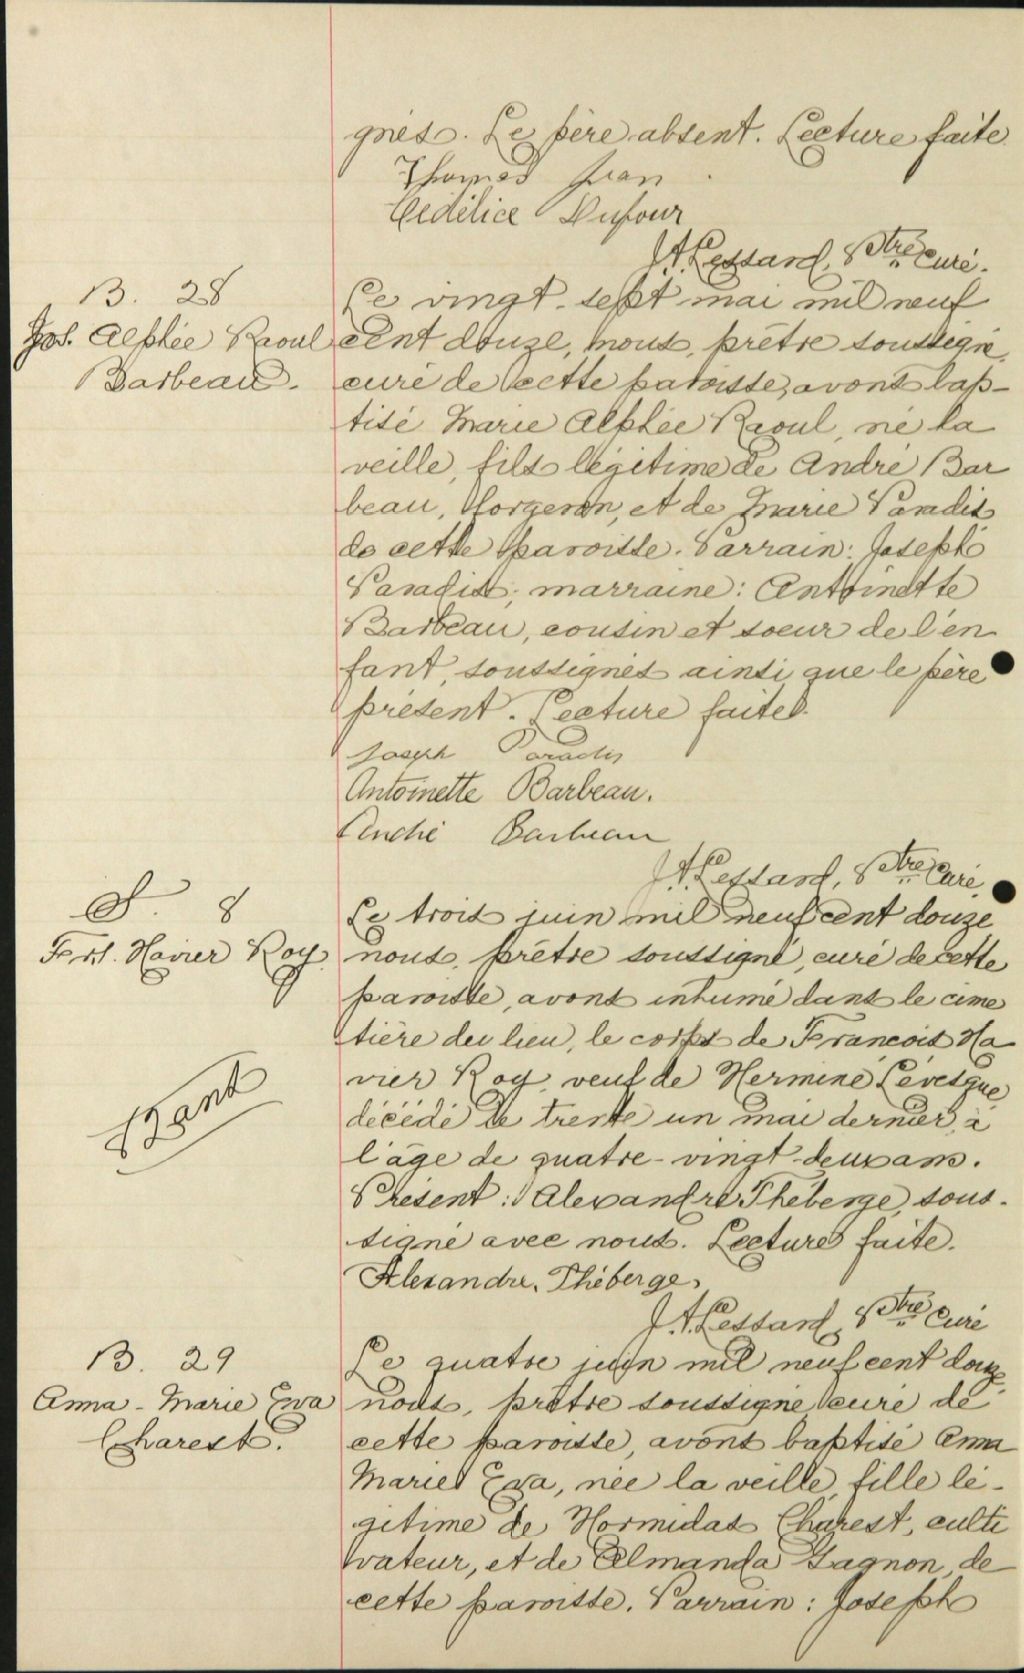 gnés. Le père absent. Lecture faite.
Thomas Jean
Cédélice Dufour
J.A. Lessard, Ptre Curé.
B. 28
Jos. Alphée Raoul
Barbeau.
Le vingt-sept mai mil neuf
cent douze, nous, prêtre soussigné,
curé de cette paroisse, avons bap-
tisé Marie Alphée Raoul, né la
veille, fils légitime de André Bar
beau, forgeron, et de Marie Paradis
de cette paroisse. Parrain: Joseph
Paradis; marraine: Antoinette
Barbeau, cousin et soeur de l'en
fant, soussignés ainsi que le père
présent. Lecture faite.
Joseph Paradis
Antoinette Barbeau.
André Barbeau
J.A. Lessard, Ptre Curé.
S. 8
Frs. Xavier Roy
Le trois juin mil neuf cent douze
nous, prêtre soussigné, curé de cette
paroisse, avons inhumé dans le cime
tière du lieu, le corps de François Xa
vier Roy, veuf de Hermine Lévesque
décédé le trente un mai dernier, à
l'âge de quatre-vingt-deux ans.
Présent: Alexandre Théberge, sous-
signé avec nous. Lecture faite.
Alexandre Théberge
J.A. Lessard, Ptre Curé
B. 29
Anna-Marie Eva
Charest.
Le quatre juin mil neuf cent douze,
nous, prêtre soussigné, curé de
cette paroisse, avons baptisé Anna
Marie Eva, née la veille, fille lé-
gitime de Hormidas Charest, culti
vateur, et de Elmanda Gagnon, de
cette paroisse. Parrain: Joseph